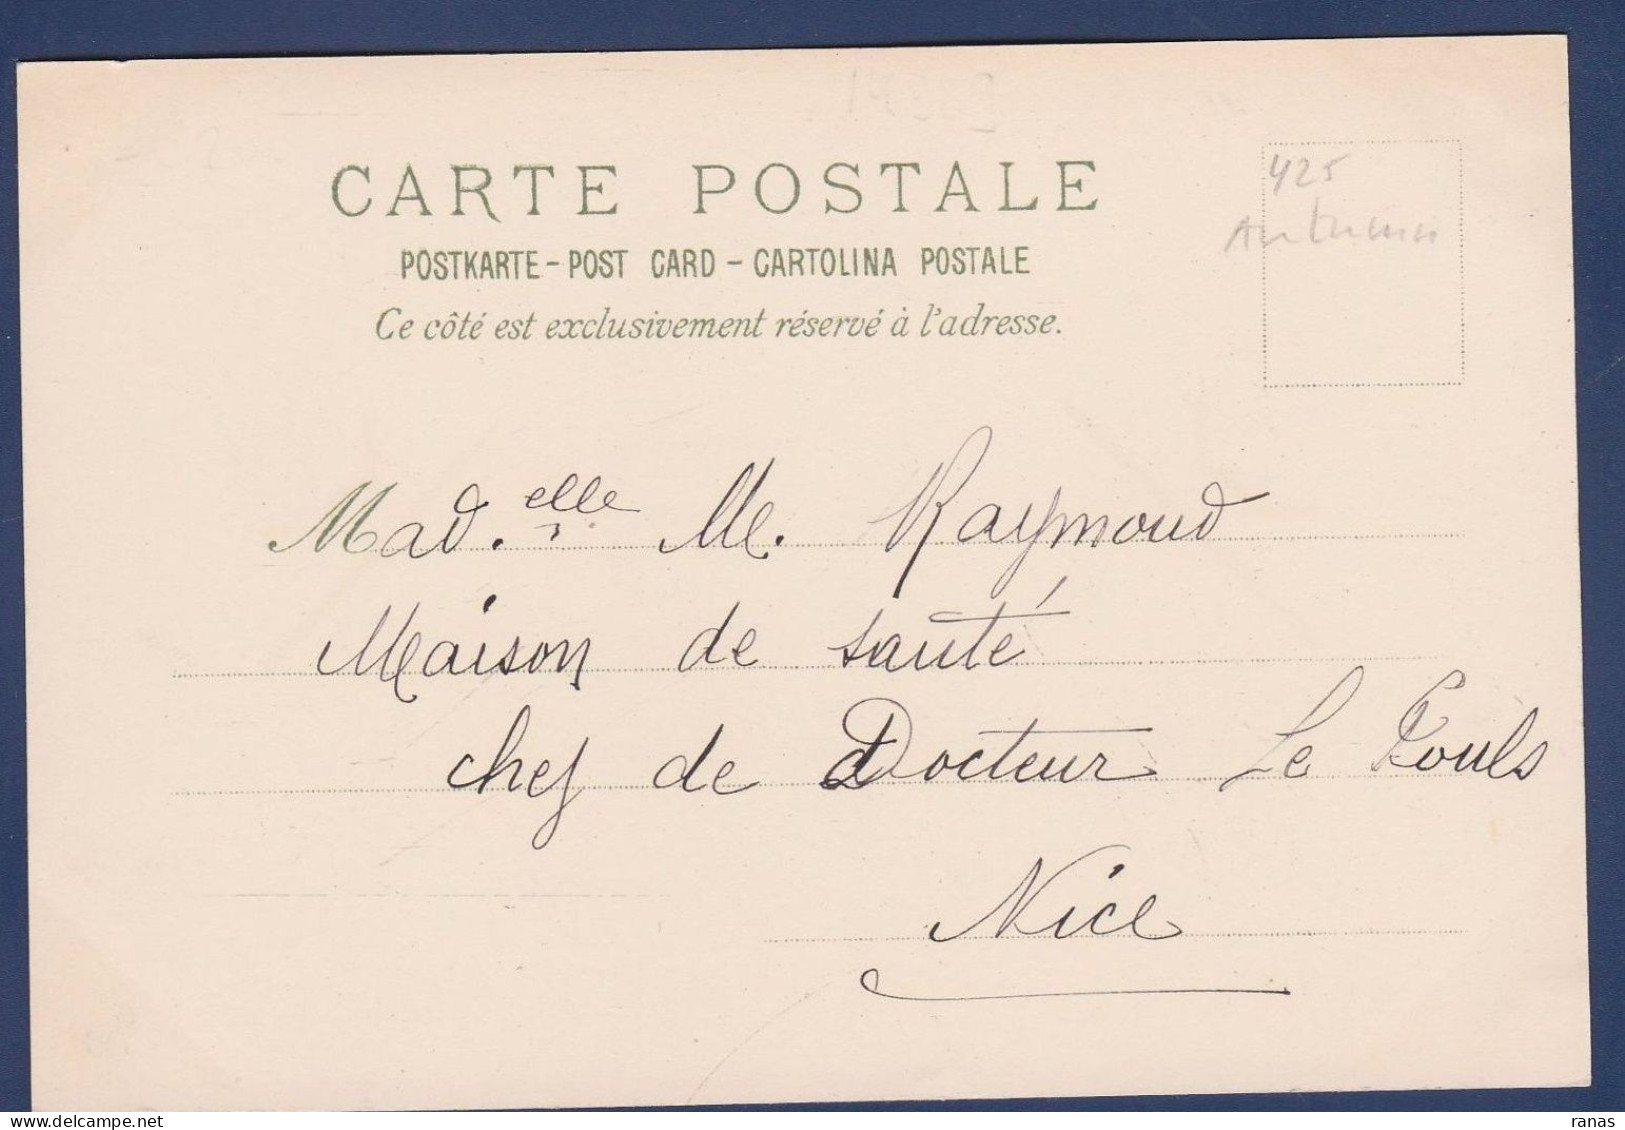 CARTE POSTALE
POSTKARTE - POST CARD - CARTOLINA POSTALE
Ce côté est exclusivement réservé à l'adresse.
425
Mad.elle M. Raymond
Maison de santé
chef de Docteur Le
Nice
ranas